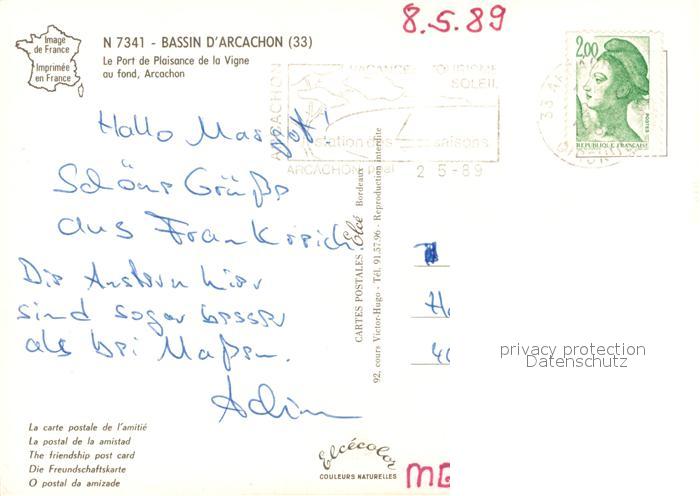 8.5.89
Image
de France
Imprimée
en France
N 7341 - BASSIN D'ARCACHON (33)
Le Port de Plaisance de la Vigne
au fond, Arcachon
2,00
POSTES
REPUBLIQUE FRANÇAISE
ARCACHON
VACANCES TOURISME
SOLEIL
station des saisons
ARCACHON ppal
2 5-89
33 A
Hallo Margot!
Schöne Grüße
aus Frankreich.
Die Austern hier
sind sogar besser
als bei Maßen.
Achim
CARTES POSTALES Elcé Bordeaux
92, cours Victor-Hugo - Tél. 91.57.96 - Reproduction interdite
H
40
privacy protection
Datenschutz
La carte postale de l'amitié
La postal de la amistad
The friendship post card
Die Freundschaftskarte
O postal da amizade
Elcécolor
COULEURS NATURELLES
MD